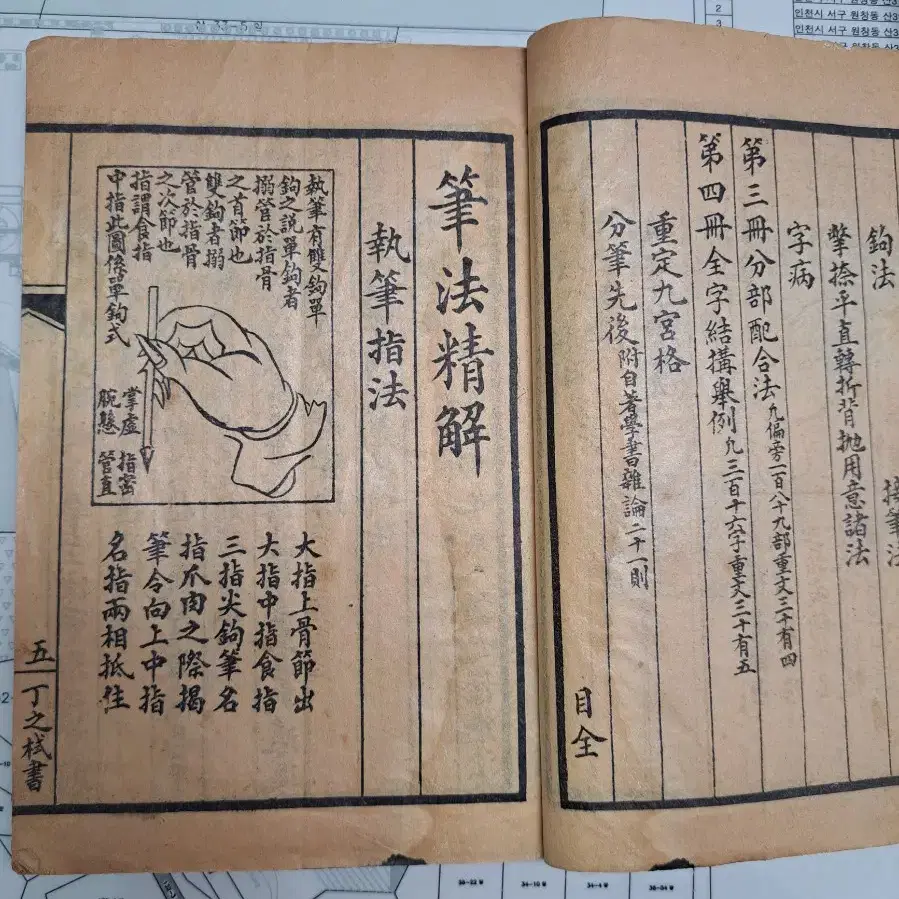 鉤法 接筆法
撆捺平直轉折背拋用意諸法
字病
第三冊分部配合法 凡偏旁一百八十九部重文三十有四
第四冊全字結構舉例 凡三百十六字重文三十有五
重定九宮格
分筆先後 附自著學書雜論二十一則
目全
筆法精解
執筆指法
執筆有雙鉤單
鉤之說單鉤者
搦管於指骨
之首節也
雙鉤者搦
管於指骨
之次節也
指謂食指
中指此圖像單鉤式
掌虛
腕懸
指密
管直
大指上骨節出
大指中指食指
三指尖鉤筆名
指爪肉之際揭
筆令向上中指
名指兩相抵住
五
丁之栻書
2
3
인천시 서구 원창동 산3
인천시 서구 원창동 산3